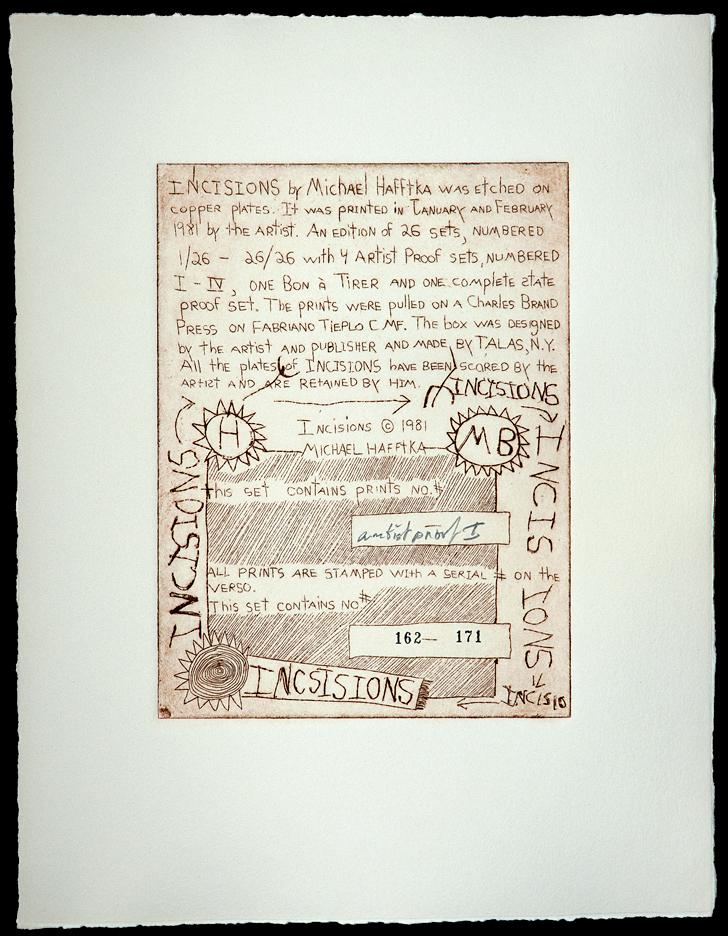 INCISIONS by Michael Hafftka was etched on
copper plates. It was printed in January and February
1981 by the artist. An edition of 26 sets, numbered
1/26 – 26/26 with 4 Artist Proof sets, numbered
I - IV, one Bon à Tirer and one complete state
proof set. The prints were pulled on a Charles Brand
Press on Fabriano Tieplo CMF. The box was designed
by the artist and publisher and made by TALAS, N.Y.
All the plates of INCISIONS have been scored by the
artist and are retained by him.
INCISIONS
H
Incisions © 1981
MICHAEL HAFFTKA
MB
INCISIONS
INCISIONS
This set contains prints no.#
artist proof I
ALL PRINTS ARE STAMPED WITH A SERIAL # ON the
VERSO.
This set contains no.#
162— 171
INCSISIONS
INCISIO